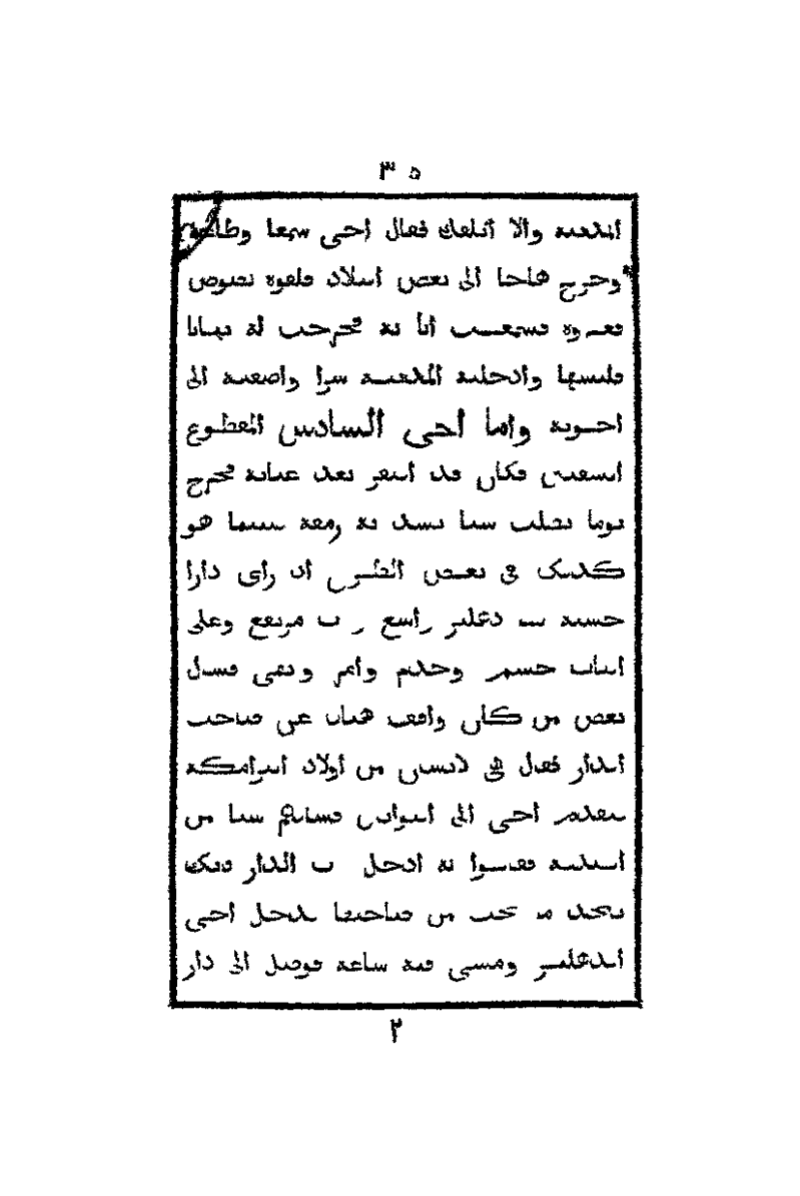 ٣٥
المدينة والا اتلفك فقال اخى سمعا وطاعة
وخرج هاجا الى بعض البلاد فلقوه لصوص
فعروه فسمعت انا به فخرجت له بثيابا
فلبسها وادخلته المدينة سرا واضفته الى
اخوته واما اخى السادس المقطوع
الشفتين فكان قد افتقر بعد غنائه فخرج
يوما يطلب شيا يسد به رمقه فبينما هو
كذلك فى بعض الطرق اذ راى دارا
حسنة دهليز واسع مرتفع وعلى
الباب حشم وخدم وامر ونهى فسال
بعض من كان واقف هناك عن صاحب
الدار فقال هى لانسان من اولاد البرامكة
فتقدم اخى الى البوابين فسالهم شيا من
فقالوا له ادخل باب الدار فانك
تجد ما تحب من صاحبها فدخل اخى
الدهليز ومشى فيه ساعة فوصل الى دار
٢